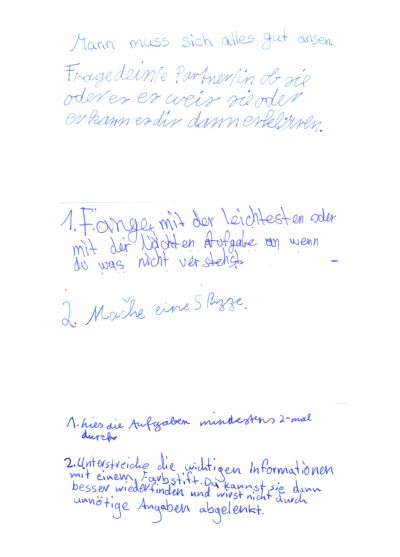 Mann muss sich alles gut ansen
Frage dein/e Partner/in ob sie
oder er er weis sie oder
er kann er dir dann erklären.
1. Fange mit der leichtesten oder
mit der Nächten Aufgabe an wenn
du was nicht verstehst
2. Mache eine Skizze.
1. lies die Aufgaben mindestens 2-mal
durch
2. Unterstreiche die wichtigen Informationen
mit einem Farbstift. Du kannst sie dann
besser wiederfinden und wirst nicht durch
unnötige Angaben abgelenkt.